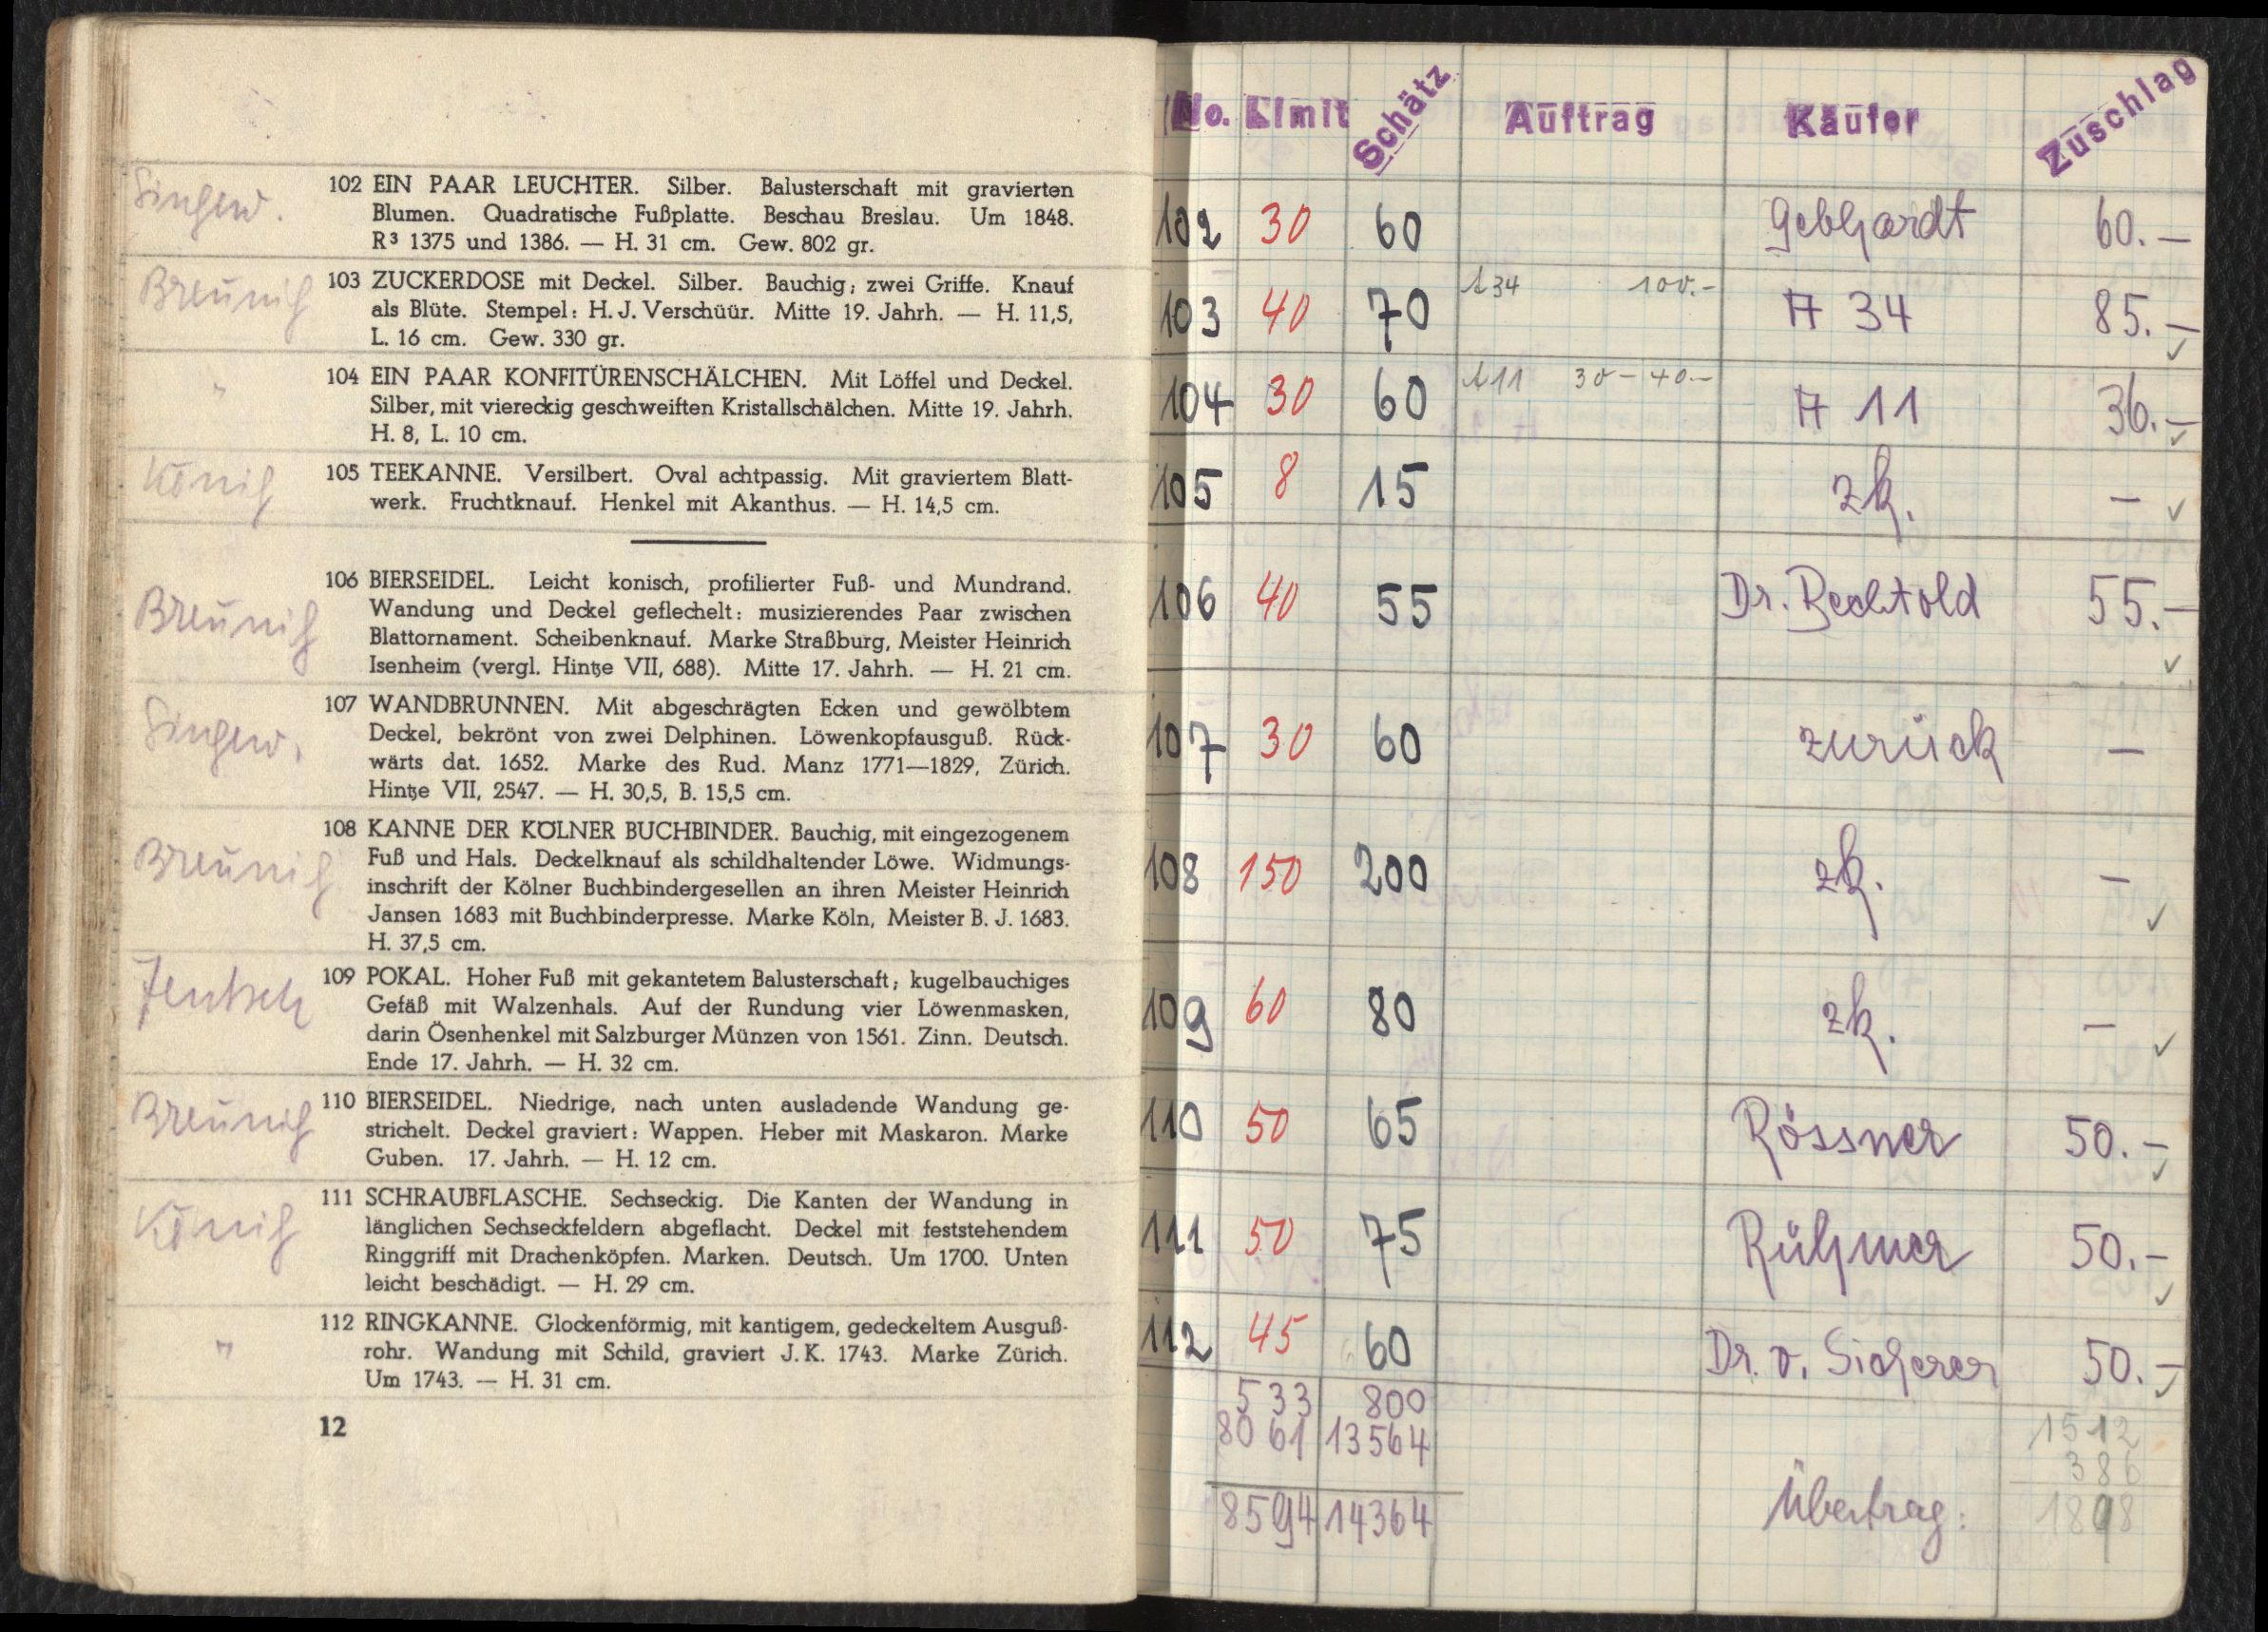 Singew.
102 EIN PAAR LEUCHTER. Silber. Balusterschaft mit gravierten
Blumen. Quadratische Fußplatte. Beschau Breslau. Um 1848.
R³ 1375 und 1386. — H. 31 cm. Gew. 802 gr.
Breünig
103 ZUCKERDOSE mit Deckel. Silber. Bauchig; zwei Griffe. Knauf
als Blüte. Stempel: H. J. Verschüür. Mitte 19. Jahrh. — H. 11,5,
L. 16 cm. Gew. 330 gr.
"
104 EIN PAAR KONFITÜRENSCHÄLCHEN. Mit Löffel und Deckel.
Silber, mit viereckig geschweiften Kristallschälchen. Mitte 19. Jahrh.
H. 8, L. 10 cm.
König
105 TEEKANNE. Versilbert. Oval achtpassig. Mit graviertem Blatt-
werk. Fruchtknauf. Henkel mit Akanthus. — H. 14,5 cm.
Breünig
106 BIERSEIDEL. Leicht konisch, profilierter Fuß- und Mundrand.
Wandung und Deckel geflechelt: musizierendes Paar zwischen
Blattornament. Scheibenknauf. Marke Straßburg, Meister Heinrich
Isenheim (vergl. Hintze VII, 688). Mitte 17. Jahrh. — H. 21 cm.
Singew.
107 WANDBRUNNEN. Mit abgeschrägten Ecken und gewölbtem
Deckel, bekrönt von zwei Delphinen. Löwenkopfausguß. Rück-
wärts dat. 1652. Marke des Rud. Manz 1771—1829, Zürich.
Hintze VII, 2547. — H. 30,5, B. 15,5 cm.
Breünig
108 KANNE DER KÖLNER BUCHBINDER. Bauchig, mit eingezogenem
Fuß und Hals. Deckelknauf als schildhaltender Löwe. Widmungs-
inschrift der Kölner Buchbindergesellen an ihren Meister Heinrich
Jansen 1683 mit Buchbinderpresse. Marke Köln, Meister B. J. 1683.
H. 37,5 cm.
Jentsch
109 POKAL. Hoher Fuß mit gekantetem Balusterschaft; kugelbauchiges
Gefäß mit Walzenhals. Auf der Rundung vier Löwenmasken,
darin Ösenhenkel mit Salzburger Münzen von 1561. Zinn. Deutsch.
Ende 17. Jahrh. — H. 32 cm.
Breünig
110 BIERSEIDEL. Niedrige, nach unten ausladende Wandung ge-
strichelt. Deckel graviert: Wappen. Heber mit Maskaron. Marke
Guben. 17. Jahrh. — H. 12 cm.
König
111 SCHRAUBFLASCHE. Sechseckig. Die Kanten der Wandung in
länglichen Sechseckfeldern abgeflacht. Deckel mit feststehendem
Ringgriff mit Drachenköpfen. Marken. Deutsch. Um 1700. Unten
leicht beschädigt. — H. 29 cm.
"
112 RINGKANNE. Glockenförmig, mit kantigem, gedeckeltem Ausguß-
rohr. Wandung mit Schild, graviert J. K. 1743. Marke Zürich.
Um 1743. — H. 31 cm.
12
No. Limit Schätz Auftrag Käufer Zuschlag
102 30 60 Gebhardt 60.—
103 40 70 A 34 100.- A 34 85.— ✓
104 30 60 A 11 30-40.- A 11 36.— ✓
105 8 15 zk. — ✓
106 40 55 Dr. Bechtold 55.— ✓
107 30 60 zurück —
108 150 200 zk. — ✓
109 60 80 zk. — ✓
110 50 65 Rössner 50.— ✓
111 50 75 Rühmer 50.— ✓
112 45 60 Dr. v. Sicherer 50.— ✓
533 800
8061 13564 1512
386
8594 14364 Übertrag: 1898